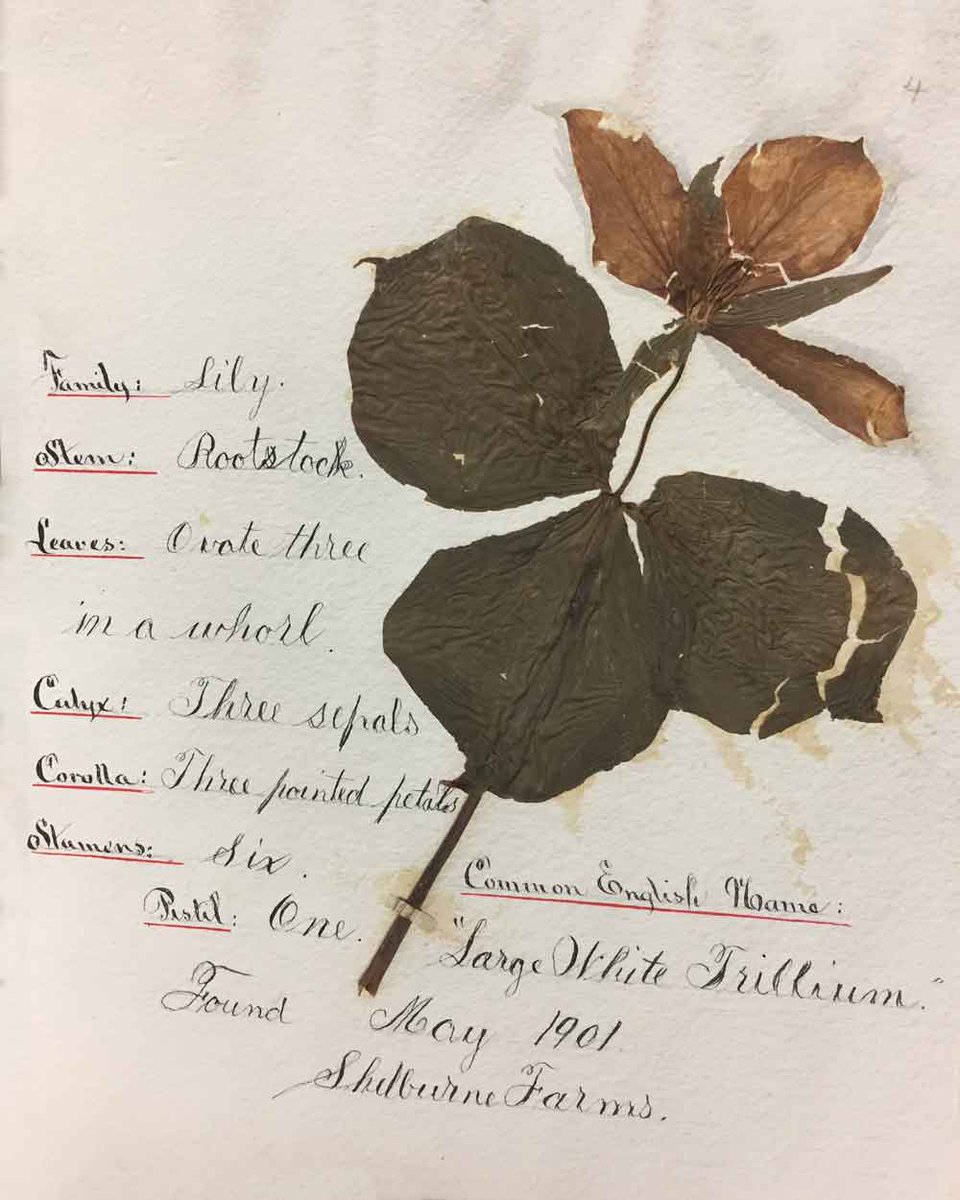 4
Family: Lily.
Stem: Rootstock.
Leaves: Ovate three
in a whorl.
Calyx: Three sepals
Corolla: Three pointed petals
Stamens: Six.
Pistil: One.
Common English Name:
"Large White Trillium."
Found May 1901.
Shelburne Farms.